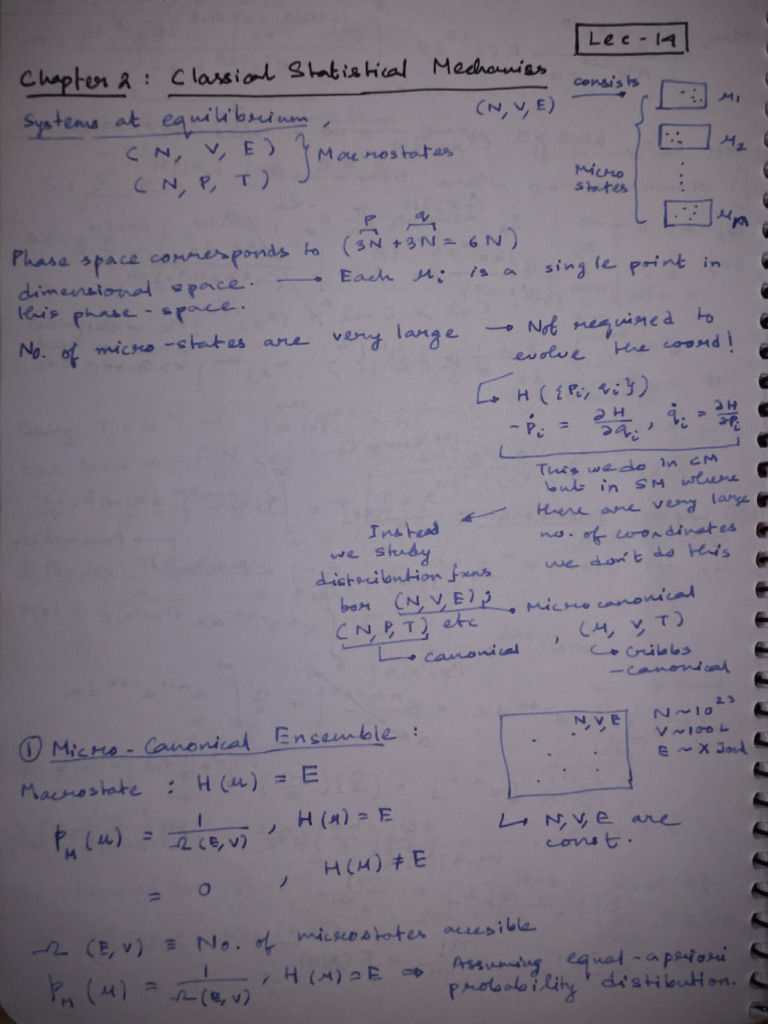 Lec-14
Chapter 2 : Classical Statistical Mechanics
Systems at equilibrium,
(N, V, E) consists
(N, V, E)
(N, P, T) } Macrostates
Micro states
μ1
μ2
⋮
μm
Phase space corresponds to (3N + 3N = 6N)
p q
dimensional space. → Each μi is a single point in
this phase-space.
No. of micro-states are very large → Not required to
evolve the coord!
↳ H ({Pi, qi})
-ṗi = ∂H/∂qi , q̇i = ∂H/∂Pi
This we do in CM
but in SM where
there are very large
no. of coordinates
we don't do this
Instead
we study
distribution fxns
for (N,V,E); → Microcanonical
(N,P,T) etc , (μ, V, T)
↳ canonical ↳ Gibbs
-canonical
① Micro-Canonical Ensemble :
N,V,E
N ~ 10²³
V ~ 100 L
E ~ X Joul
↳ N,V,E are
const.
Macrostate : H(μ) = E
p_M (μ) = 1/Ω(E,V) , H(μ) = E
= 0 , H(μ) ≠ E
Ω (E,V) ≡ No. of microstates accesible
p_M (μ) = 1/Ω(E,V) , H(μ) = E ⇒ Assuming equal-apriori
probability distibution.